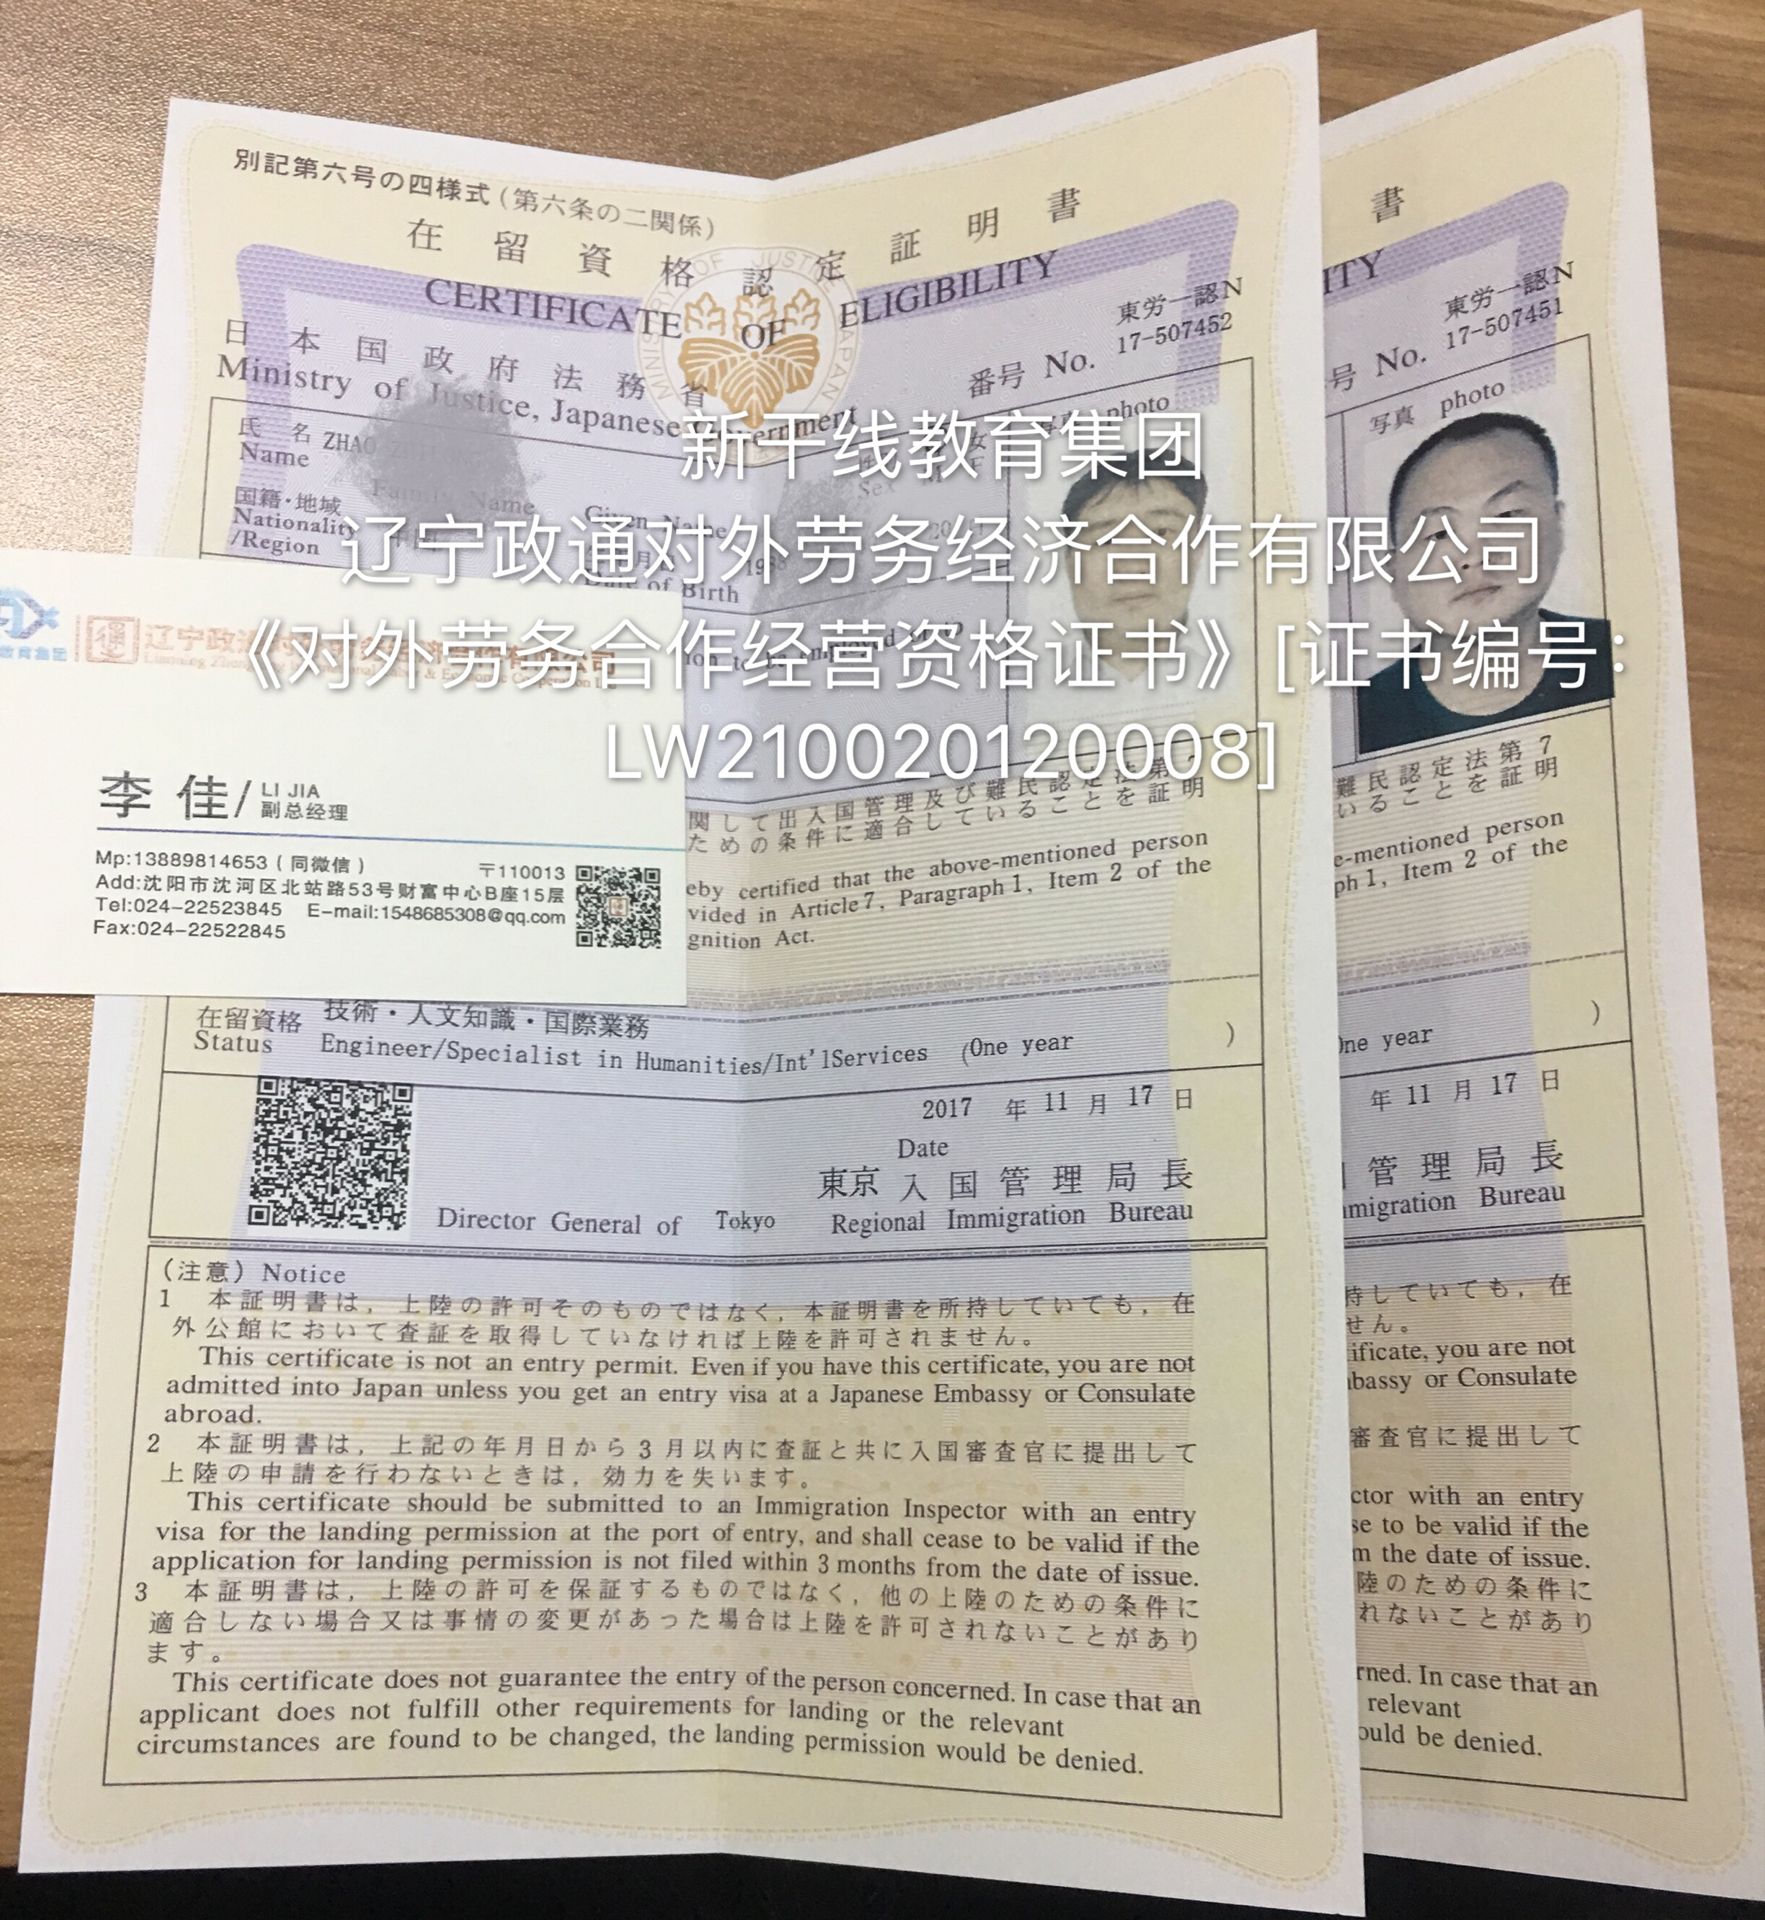 別記第六号の四様式(第六条の二関係)
在留資格認定証明書
CERTIFICATE OF ELIGIBILITY
東労一認N
番号 No. 17-507452
日本国政府法務省
Ministry of Justice, Japanese Government
氏名 ZHAO
Name
Family Name
Given Name
Sex
photo
国籍・地域
Nationality
/Region
Date of Birth
新干线教育集团
辽宁政通对外劳务经济合作有限公司
《对外劳务合作经营资格证书》[证书编号：
LW210020120008]
教育集团
李佳/ LI JIA
副总经理
Mp:13889814653(同微信) 〒110013
Add:沈阳市沈河区北站路53号财富中心B座15层
Tel:024-22523845 E-mail:1548685308@qq.com
Fax:024-22522845
関して出入国管理及び難民認定法第
ための条件に適合していることを証明
eby certified that the above-mentioned person
vided in Article 7, Paragraph 1, Item 2 of the
gnition Act.
在留資格 技術・人文知識・国際業務
Status Engineer/Specialist in Humanities/Int'lServices (One year )
2017 年 11 月 17 日
Date
東京入国管理局長
Director General of Tokyo Regional Immigration Bureau
(注意) Notice
1 本証明書は，上陸の許可そのものではなく，本証明書を所持していても，在
外公館において査証を取得していなければ上陸を許可されません。
This certificate is not an entry permit. Even if you have this certificate, you are not
admitted into Japan unless you get an entry visa at a Japanese Embassy or Consulate
abroad.
2 本証明書は，上記の年月日から3月以内に査証と共に入国審査官に提出して
上陸の申請を行わないときは，効力を失います。
This certificate should be submitted to an Immigration Inspector with an entry
visa for the landing permission at the port of entry, and shall cease to be valid if the
application for landing permission is not filed within 3 months from the date of issue.
3 本証明書は，上陸の許可を保証するものではなく，他の上陸のための条件に
適合しない場合又は事情の変更があった場合は上陸を許可されないことがあり
ます。
This certificate does not guarantee the entry of the person concerned. In case that an
applicant does not fulfill other requirements for landing or the relevant
circumstances are found to be changed, the landing permission would be denied.
書
ITY
東労一認N
号 No. 17-507451
写真 photo
難民認定法第7
いることを証明
e-mentioned person
ph 1, Item 2 of the
One year )
年 11 月 17 日
管理局長
mmigration Bureau
持していても，在
せん。
ificate, you are not
bassy or Consulate
審査官に提出して
ctor with an entry
se to be valid if the
m the date of issue.
陸のための条件に
れないことがあり
rned. In case that an
relevant
ould be denied.